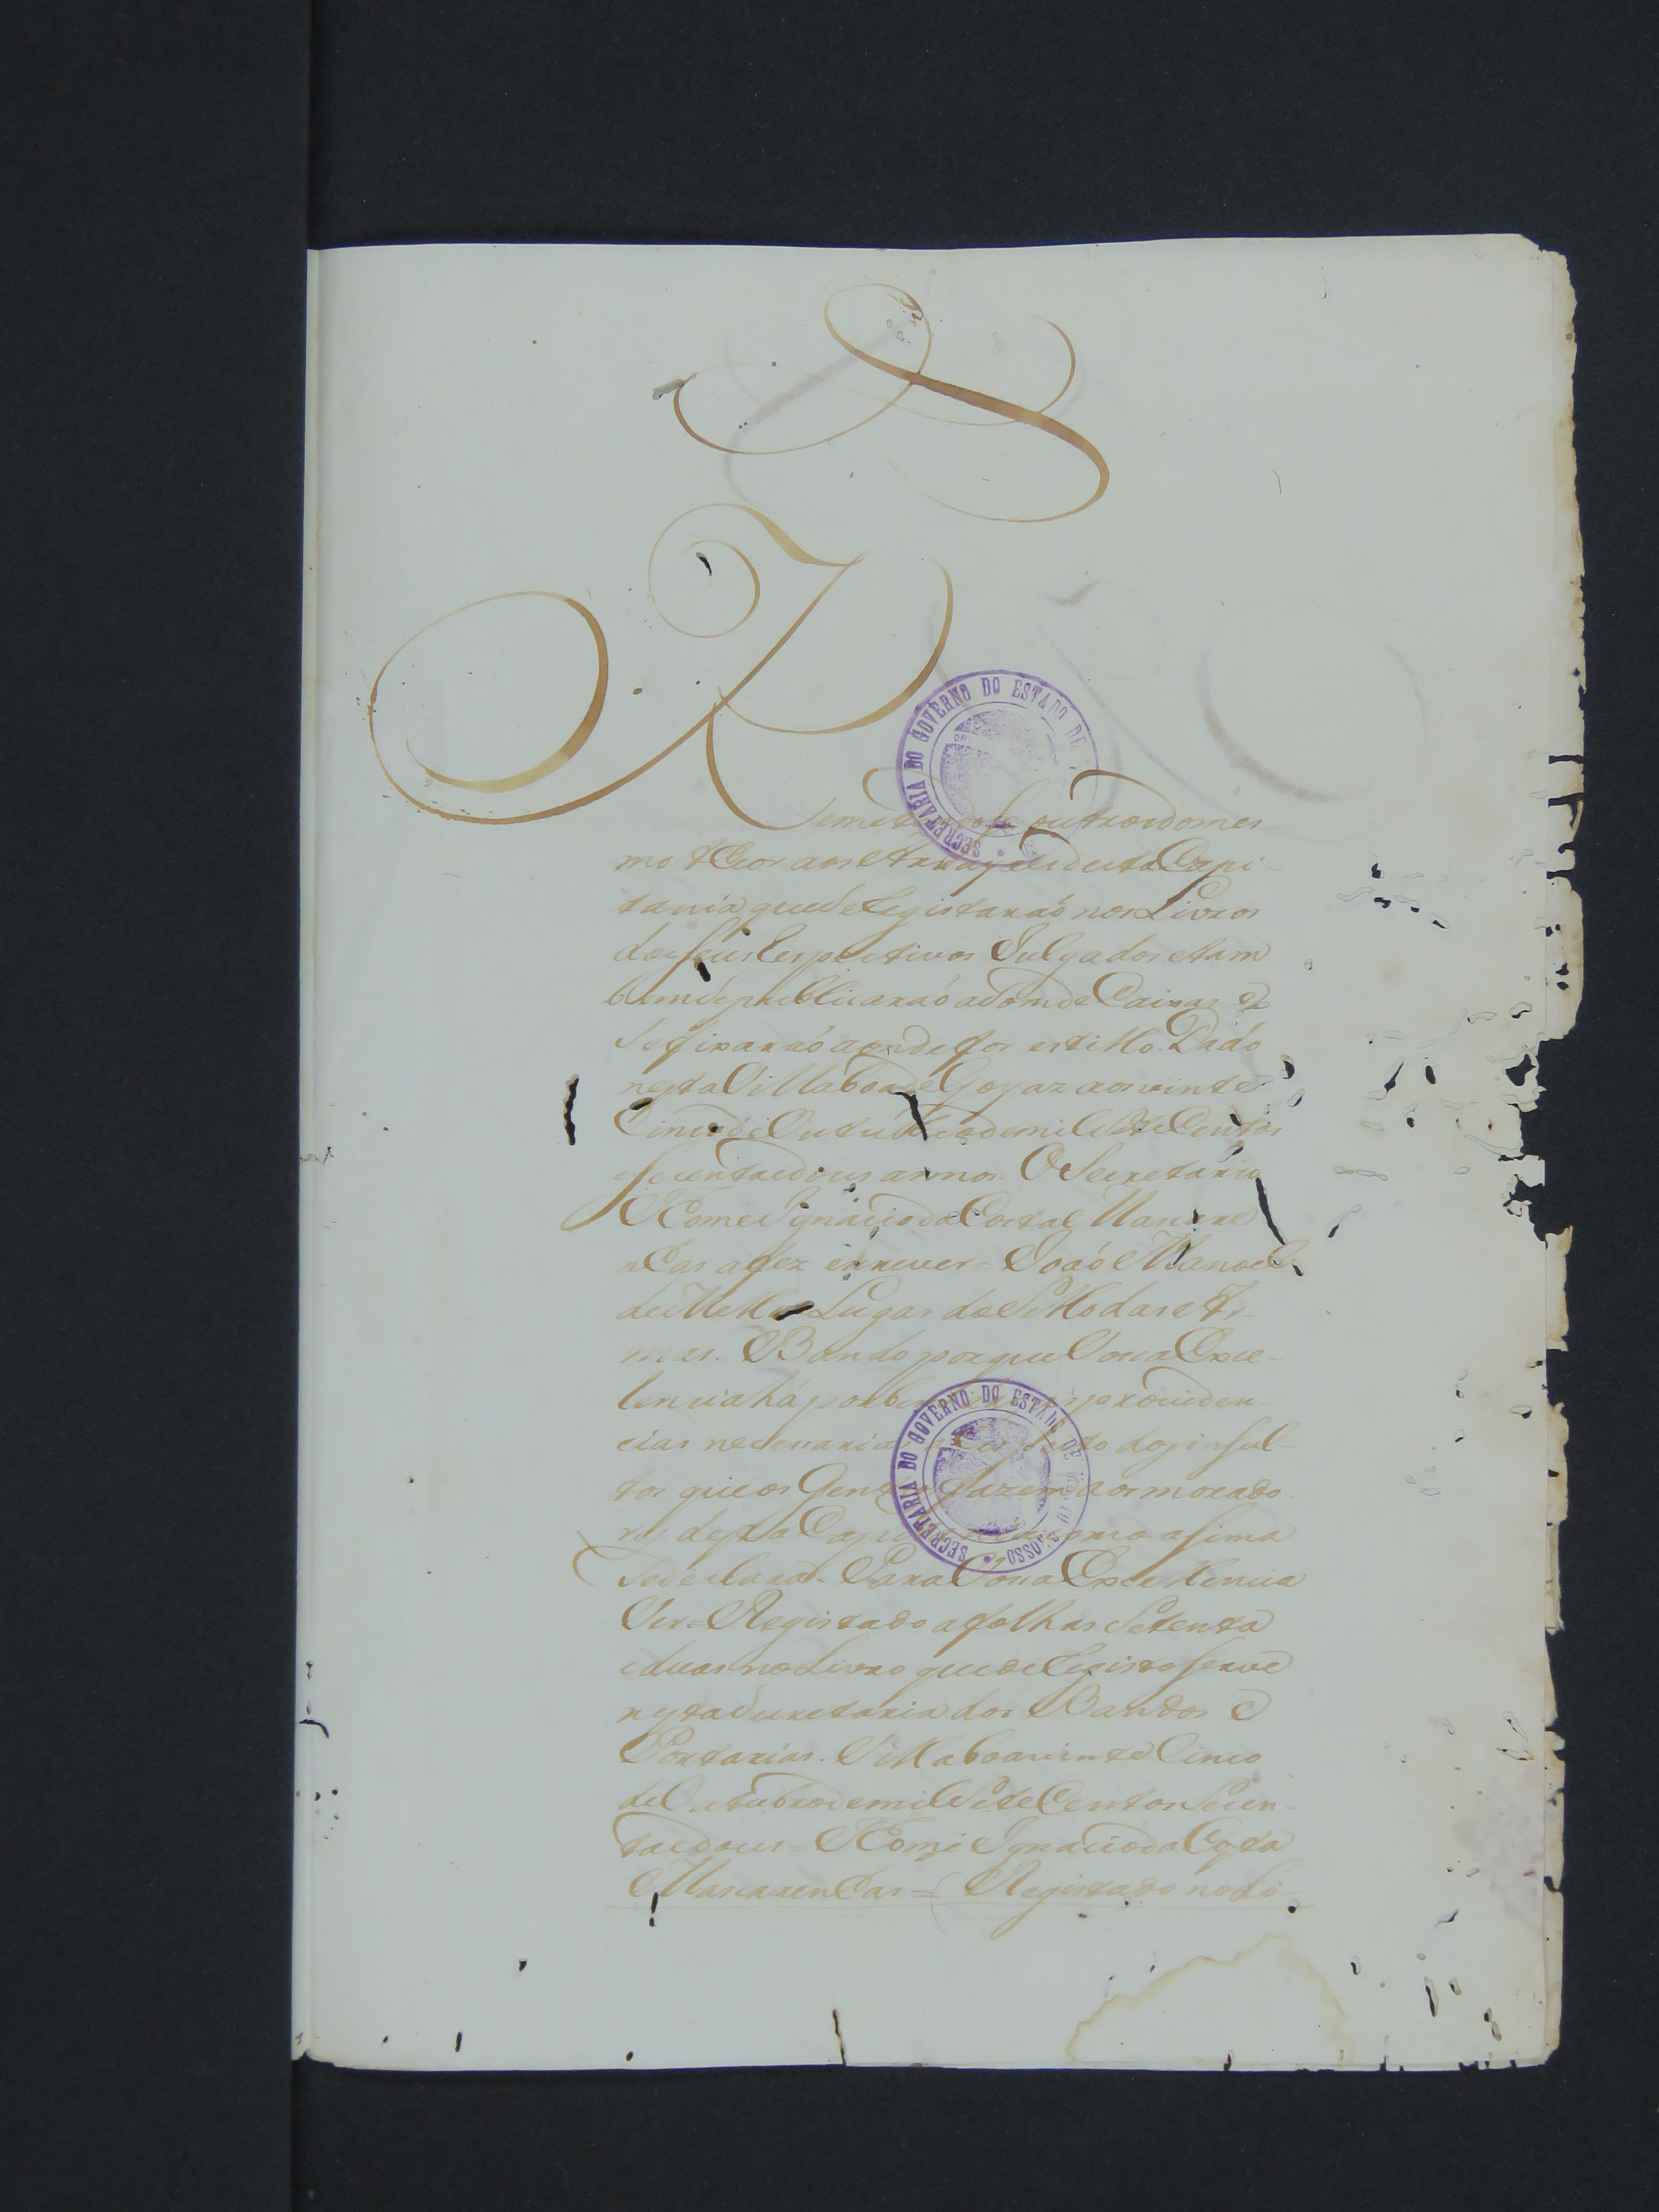 Remeterseha outrordomes
mo tHeor aos Arrayaes desta Capi-
tania que se Registaraó nos Livros
de seus Respectivos Julgados etam
bem se publicaraó a som de Caixas e
Se fixaraó aonde for estillo. Dado
nesta Villa boa de Goyaz aos vinte
Cinco de Outubro de mil Sete Centos
e Secenta e dous annos. O Secretario
Thomé Ignacio da Costa Mascare
nhas a fez escrever = Joaó Manoel
de Mello = Lugar do Sello das Ar-
mas. Bando porque Vossa Exce-
lencia há por bem providen
cias necessarias dos insul-
tos que os Gentios fazem aos morado-
res desta Capitania como asima
Se declara. Para Vossa Excellencia
Ver = Registado a folhas Setenta
e duas no Livro que de Registo serve
nesta Secretaria dos Bandos e
Portarias. Villa boa vinte Cinco
de Outubro de mil Sete Centos Secen-
ta e dous = Thomé Ignacio da Costa
Mascarenhas = Registado no Li-
SECRETARIA DO GOVERNO DO ESTADO DE
SECRETARIA DO GOVERNO DO ESTADO DE MATTO GROSSO